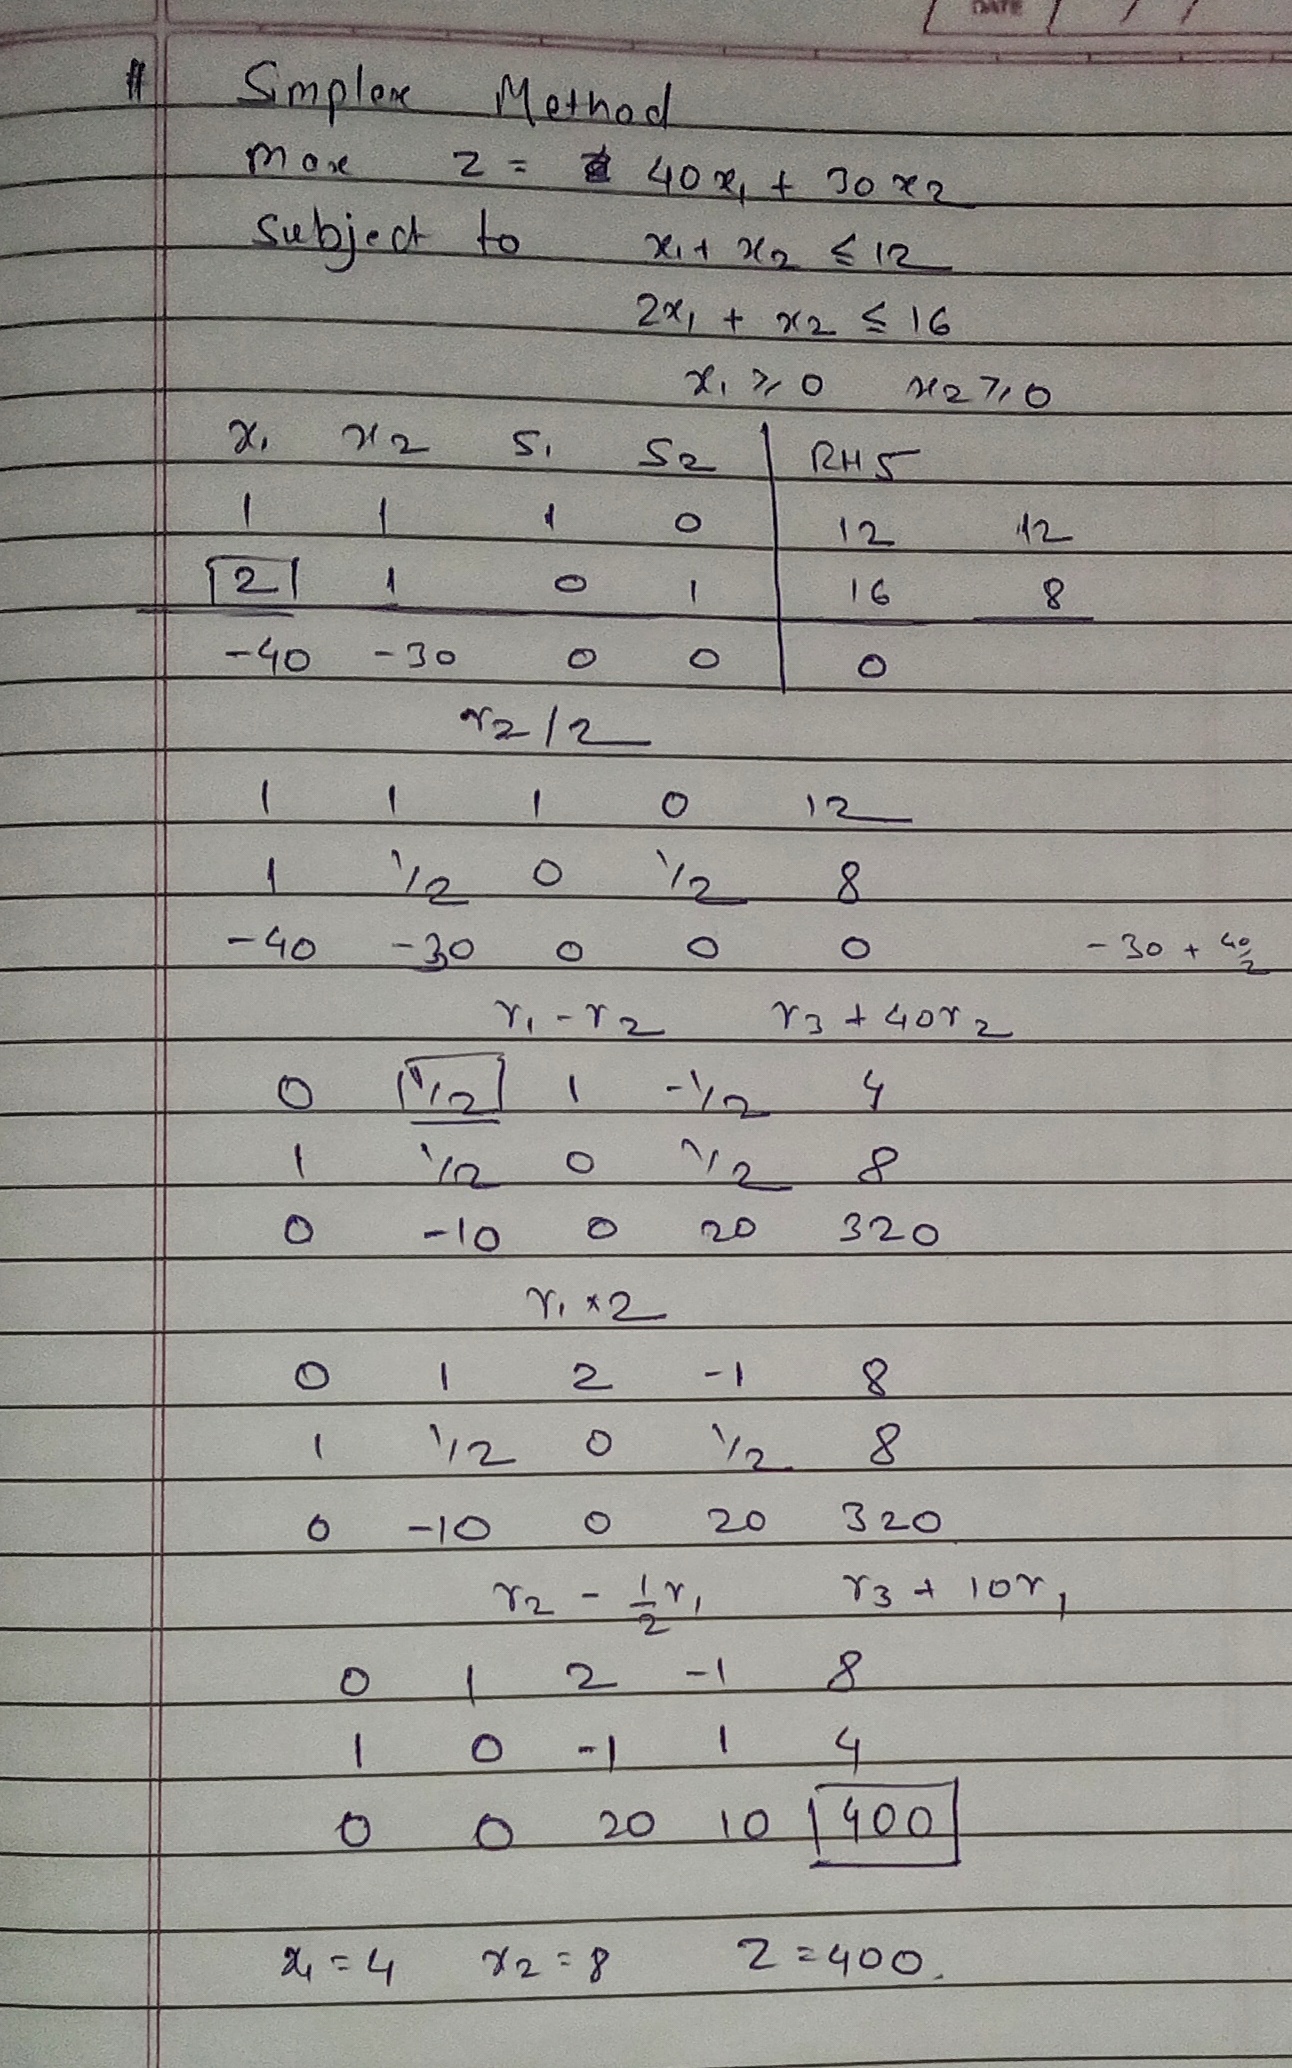 DATE
# Simplex Method
max z = 40x₁ + 30x₂
subject to x₁ + x₂ ≤ 12
2x₁ + x₂ ≤ 16
x₁ ≥ 0 x₂ ≥ 0
x₁ x₂ S₁ S₂ RHS
1 1 1 0 12 12
2 1 0 1 16 8
-40 -30 0 0 0
r₂/2
1 1 1 0 12
1 1/2 0 1/2 8
-40 -30 0 0 0 -30 + 40/2
r₁ - r₂ r₃ + 40r₂
0 1/2 1 -1/2 4
1 1/2 0 1/2 8
0 -10 0 20 320
r₁ * 2
0 1 2 -1 8
1 1/2 0 1/2 8
0 -10 0 20 320
r₂ - 1/2 r₁ r₃ + 10r₁
0 1 2 -1 8
1 0 -1 1 4
0 0 20 10 400
x₁ = 4 x₂ = 8 Z = 400.